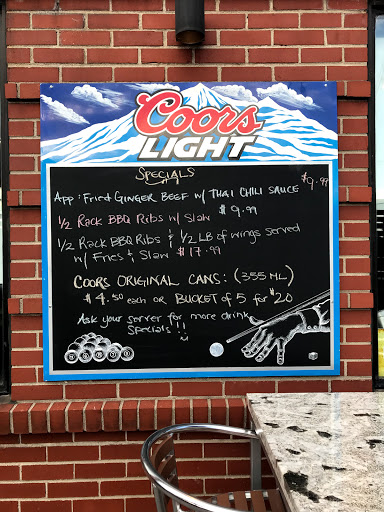 Coors
LIGHT
SPECIALS
APP: Fried GINGER BEEF w/ THAI CHILI SAUCE $9.99
1/2 RACK BBQ RIBS w/ SLAW $9.99
1/2 RACK BBQ RIBS & 1/2 LB of wings served
w/ FRIES & SLAW $17.99
COORS ORIGINAL CANS: (355 ML)
$4.50 each OR BUCKET of 5 for $20
Ask your server for more drink
Specials!!!